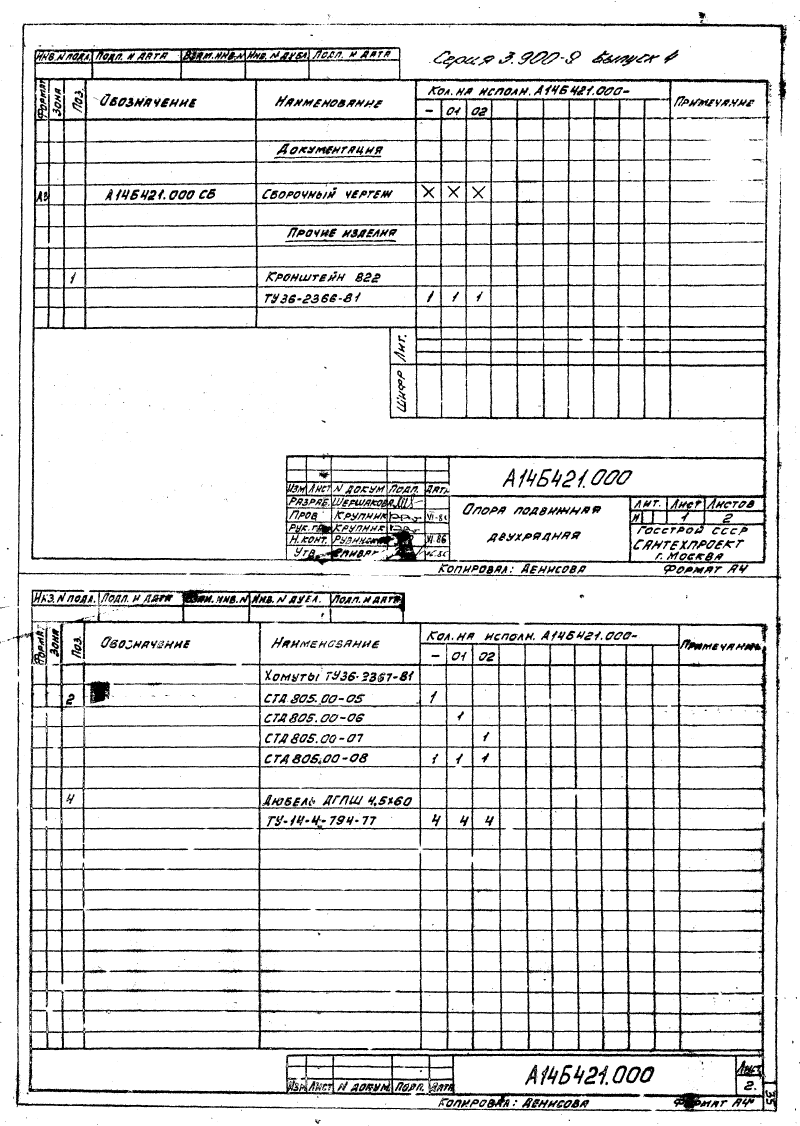 Серия 3.900-9 Выпуск 4
Инв.N подл. Подп. и дата Взам.инв.N Инв.N дубл. Подп. и дата
Формат Зона Поз. Обозначение Наименование Кол. на исполн. А14Б421.000- Примечание
- 01 02
Документация
А3 А14Б421.000 СБ Сборочный чертеж X X X
Прочие изделия
1 Кронштейн 822
ТУ36-2366-81 1 1 1
Лит.
Шифр
А14Б421.000
Изм Лист N докум Подп. Дата
Разраб. Шершакова
Пров Крупник VI-86
Рук. гр. Крупник
Н.конт. VI.86
Утв
Опора подвижная
двухрядная
Лит. Лист Листов
И 1 2
Госстрой СССР
Сантехпроект
г. Москва
Копировал: Денисова Формат А4
Инв.N подл. Подп. и дата Взам.инв.N Инв.N дубл. Подп. и дата
Формат Зона Поз. Обозначение Наименование Кол. на исполн. А14Б421.000- Примечание
- 01 02
Хомуты ТУ36-2367-81
2 СТД 805.00-05 1
СТД 805.00-06 1
СТД 805.00-07 1
СТД 805.00-08 1 1 1
4 Дюбель ДГПШ 4,5х60
ТУ-14-4-794-77 4 4 4
Изм Лист N докум. Подп. Дата
А14Б421.000
Лист
2
Копировал: Денисова Формат А4
35